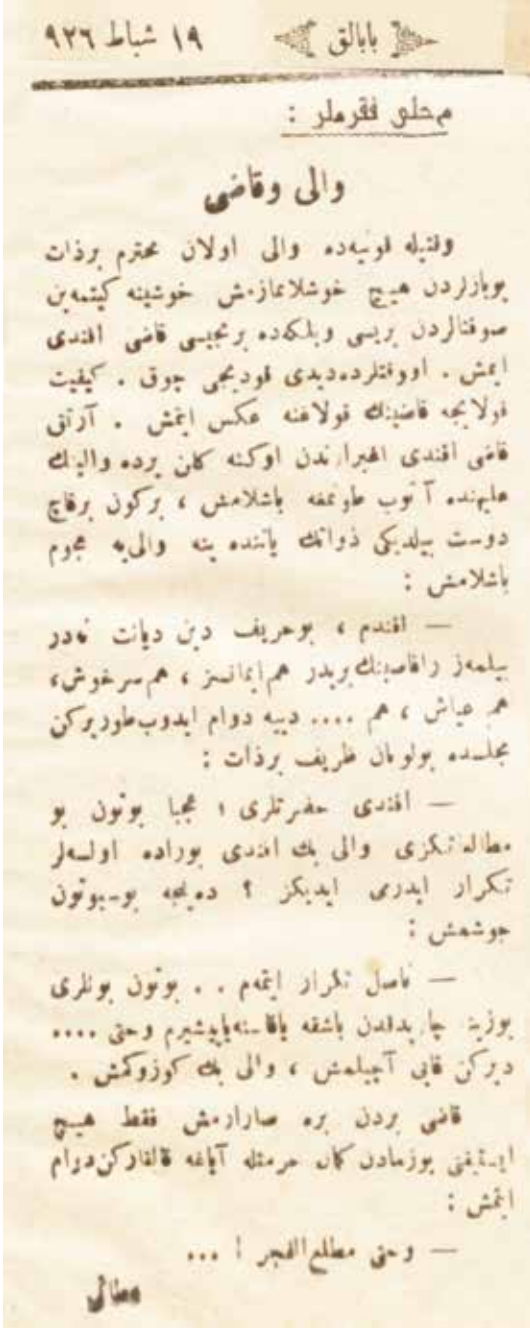 بابالق ١٩ شباط ٩٢٦
محلی فقره‌لر :
والی وقاضی
وقتیله قونیه‌ده والی اولان محترم برذات
یوبازلردن هیچ خوشلانمازمش خوشینه کیتمه‌ین
صوفتالردن بریسی وبلکه‌ده برنجیسی قاضی افندی
ایمش . اووقتلرده‌دیدی قودیجی چوق . کیفیت
قولایجه قاضینك قولاغنه عکس ایتمش . آرتق
قاضی افندی اغبرارندن اوکنه کلن یرده والینك
علیهنده آتوب طوتمغه باشلامش ، برکون برقاچ
دوست بیلدیکی ذواتك یاننده ینه والی‌یه هجوم
باشلامش :
— افندم ، بوحریف دین دیانت نه‌در
بیلمه‌ز هم ایمانسز ، هم سرخوش،
هم عیاش ، هم .... دییه دوام ایدوب طوررکن
مجلسده بولونان ظریف برذات :
— افندی حضرتلری ؛ عجبا بوتون بو
مطالعه‌ﻜزی والی بك افندی بوراده اولسه‌لر
تکرار ایدرمی ایدیکز ؟ ده‌ینجه بوسبوتون
جوشمش :
— ناصل تکرار ایتمه‌م . . بوتون بونلری
یوزینه چارپدقدن باشقه یاقاسنه‌یاپیشیرم وحتی ....
دیرکن قاپی آچیلمش ، والی بك کوزوکمش .
قاضی بردن بره صارارمش فقط هیچ
ایستیفنی بوزمادن کمال حرمتله آیاغه قالقارکن‌دوام
ایتمش :
— وحتی مطلع الفجر ! ...